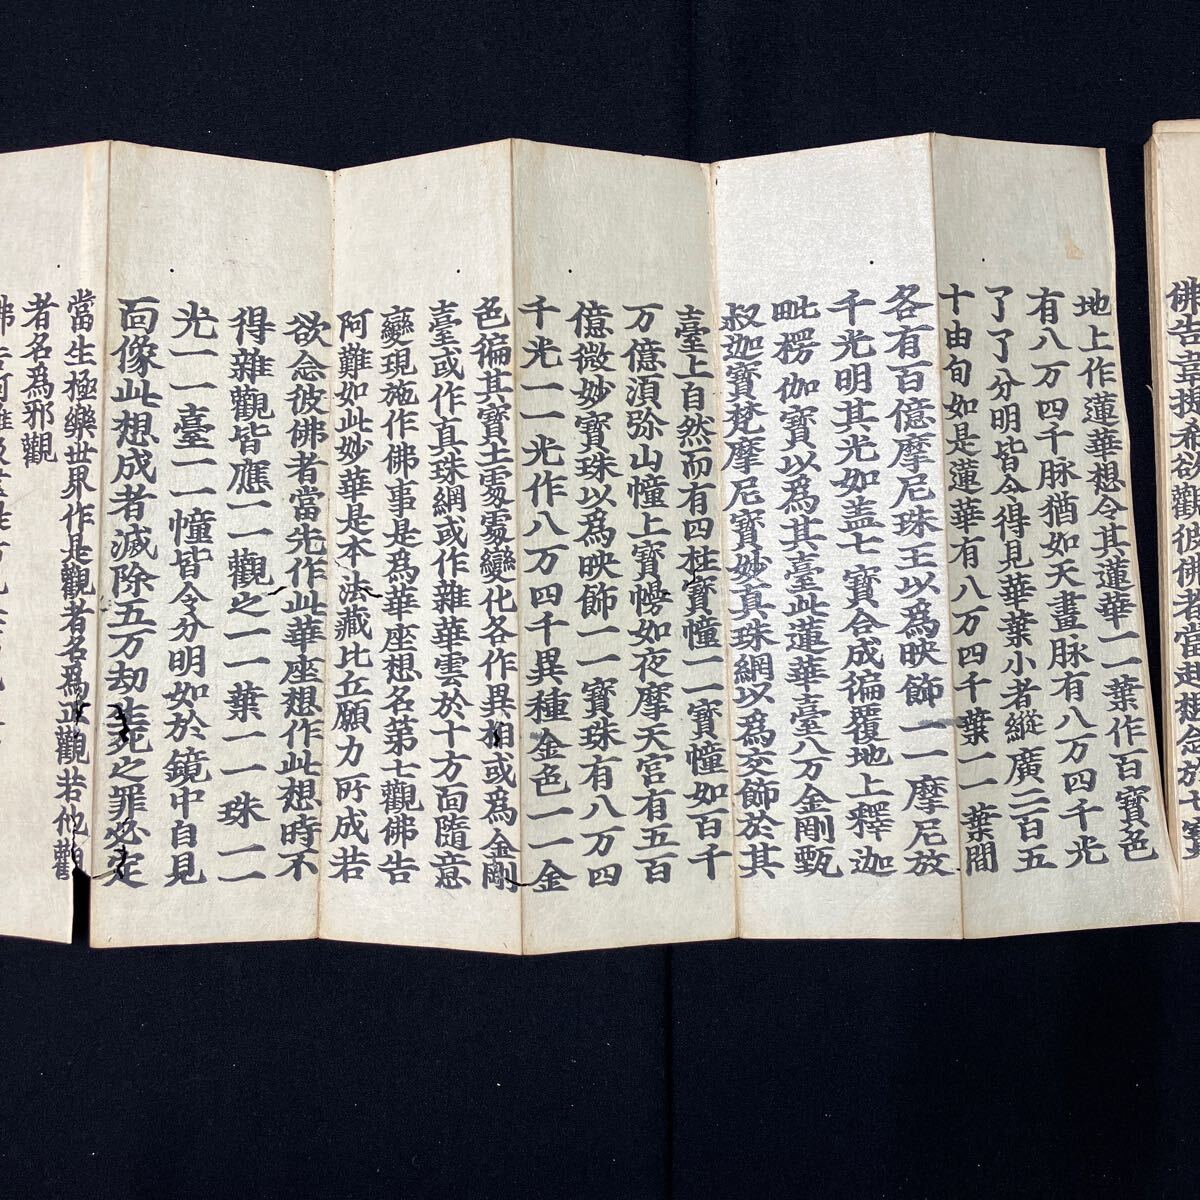 佛告韋提希欲觀彼佛者當起想念於七寶
地上作蓮華想令其蓮華一一葉作百寶色
有八万四千脉猶如天畫脉有八万四千光
了了分明皆令得見華葉小者縱廣二百五
十由旬如是蓮華有八万四千葉一一葉間
各有百億摩尼珠王以為映飾一一摩尼放
千光明其光如盖七寶合成徧覆地上釋迦
毗楞伽寶以為其臺此蓮華臺八万金剛甄
叔迦寶梵摩尼寶妙真珠網以為交飾於其
臺上自然而有四柱寶幢一一寶幢如百千
万億湏弥山幢上寶幔如夜摩天宮有五百
億微妙寶珠以為映飾一一寶珠有八万四
千光一一光作八万四千異種金色一一金
色徧其寶土䖏䖏變化各作異相或為金剛
臺或作真珠網或作雜華雲於十方面隨意
變現施作佛事是為華座想名第七觀佛告
阿難如此妙華是本法藏比丘願力所成若
欲念彼佛者當先作此華座想作此想時不
得雜觀皆應一一觀之一一葉一一珠一一
光一一臺一一幢皆令分明如於鏡中自見
面像此想成者滅除五万劫生死之罪必定
當生極樂世界作是觀者名為正觀若他觀
者名為邪觀
佛告阿難